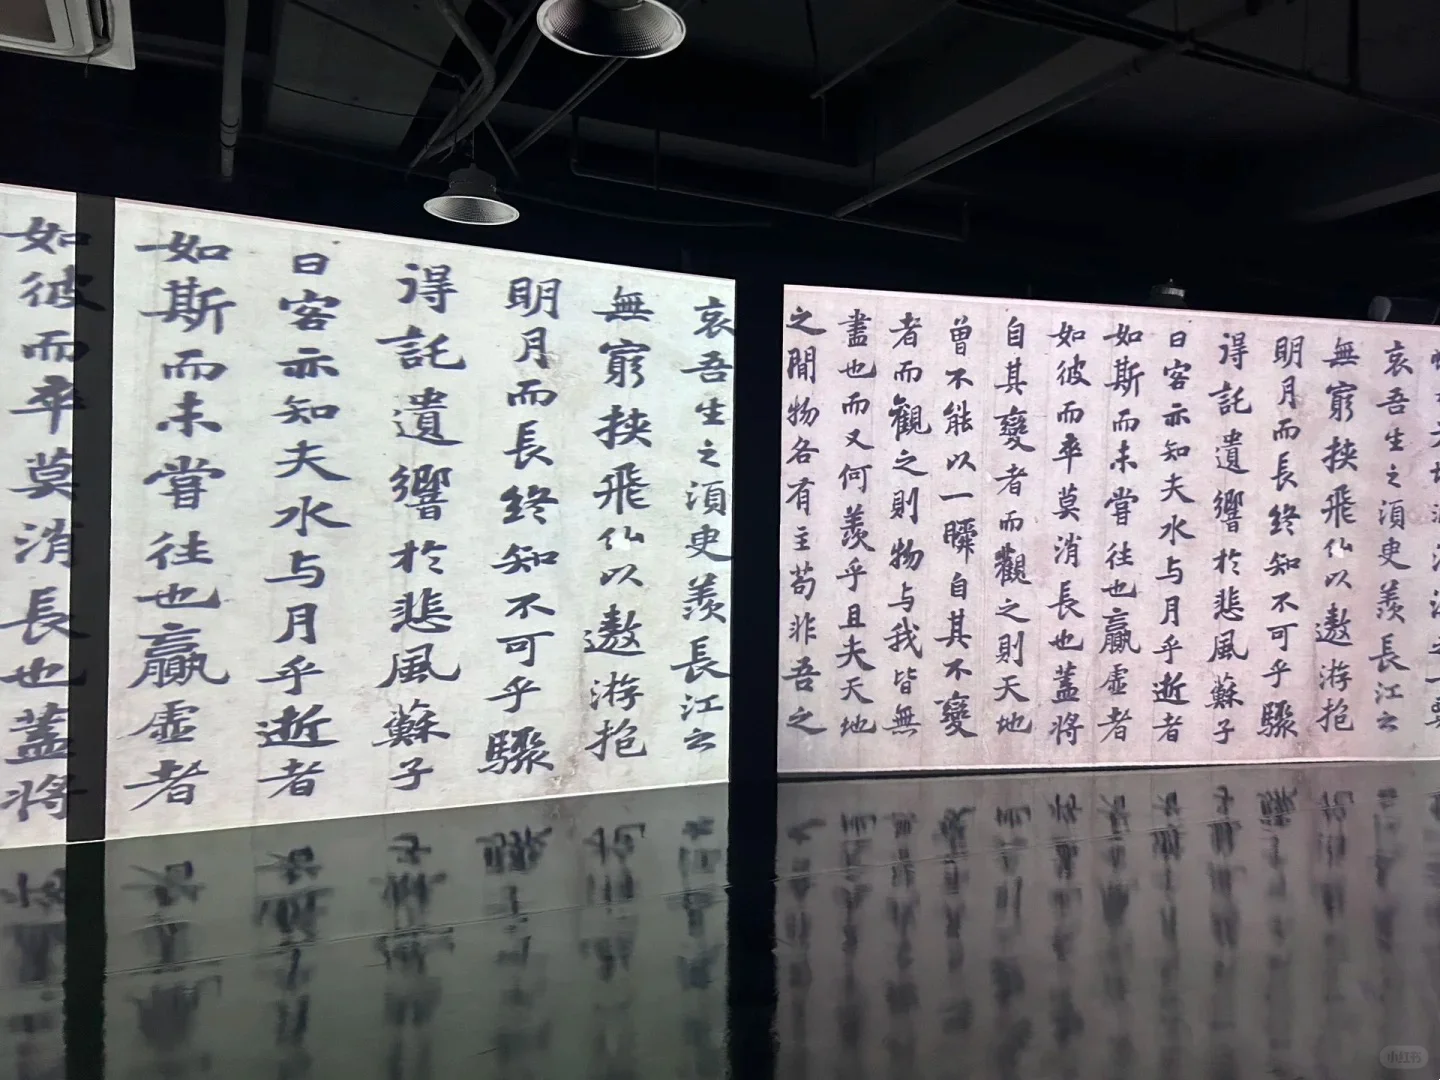 哀吾生之湏臾羨長江之
無窮挾飛仙以遨游抱
明月而長終知不可乎驟
得託遺響於悲風蘇子
曰客亦知夫水与月乎逝者
如斯而未甞往也贏虛者
如彼而卒莫消長也蓋將
自其變者而觀之則天地
曾不能以一瞬自其不變
者而觀之則物与我皆無
盡也而又何羨乎且夫天地
之間物各有主苟非吾之
哀吾生之湏臾羨長江之
無窮挾飛仙以遨游抱
明月而長終知不可乎驟
得託遺響於悲風蘇子
曰客亦知夫水与月乎逝者
如斯而未甞往也贏虛者
如彼而卒莫消長也蓋將
小红书